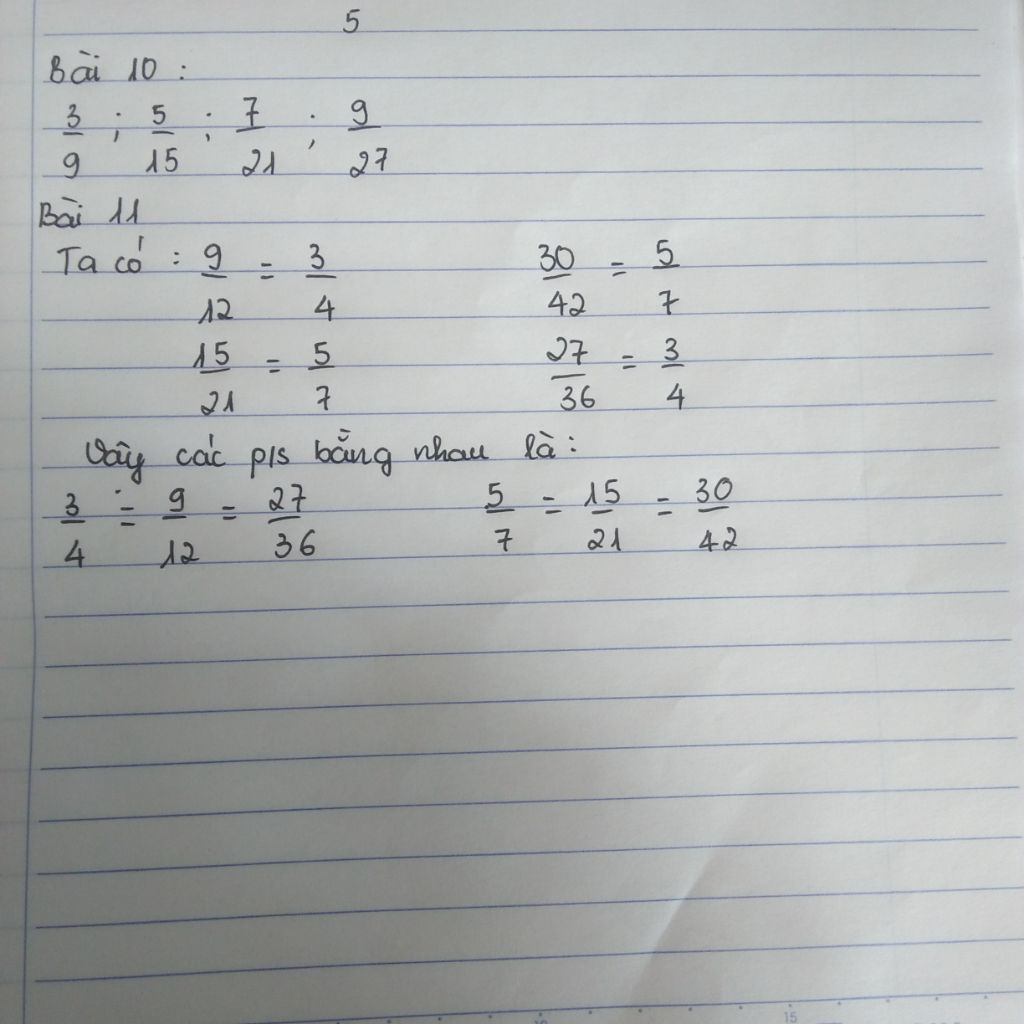 5
Bài 10 :
3/9 ; 5/15 ; 7/21 ; 9/27
Bài 11
Ta có : 9/12 = 3/4 30/42 = 5/7
15/21 = 5/7 27/36 = 3/4
Vậy các p/s bằng nhau là :
3/4 = 9/12 = 27/36 5/7 = 15/21 = 30/42
15